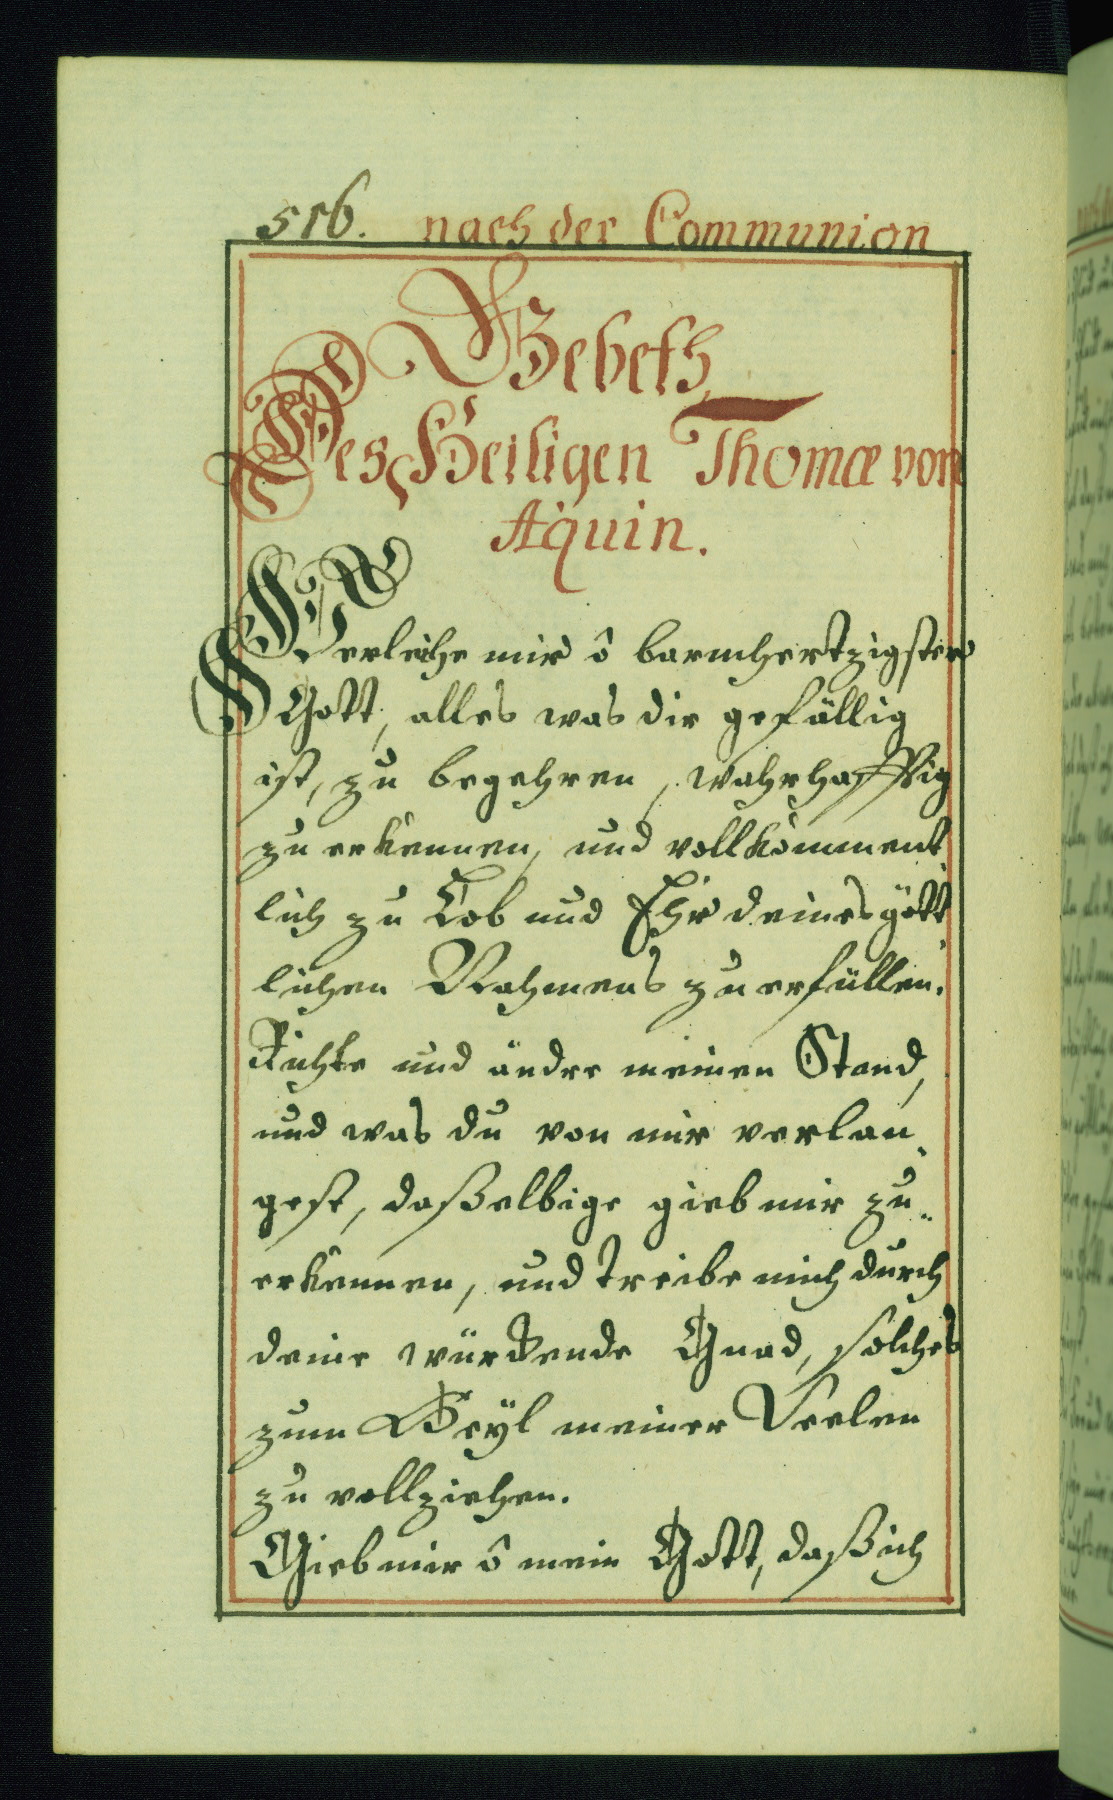 516. nach der Communion
Gebeth,
Des Heiligen Thomæ von
Aquin.
Verleihe mir ô barmhertzigster
Gott, alles was dir gefällig
ist, zu begehren, wahrhafftig
zu erkennen, und vollkomment
lich zu Lob und Ehr deines gött
lichen Nahmens zu erfüllen.
Richte und ändre meinen Stand,
und was du von mir verlan„
gest, daßelbige gieb mir zu„
erkennen, und treibe mich durch
deine würckende Gnad, solches
zum Heyl meiner Seelen
zu vollziehen.
Gieb mir ô mein Gott, daß ich